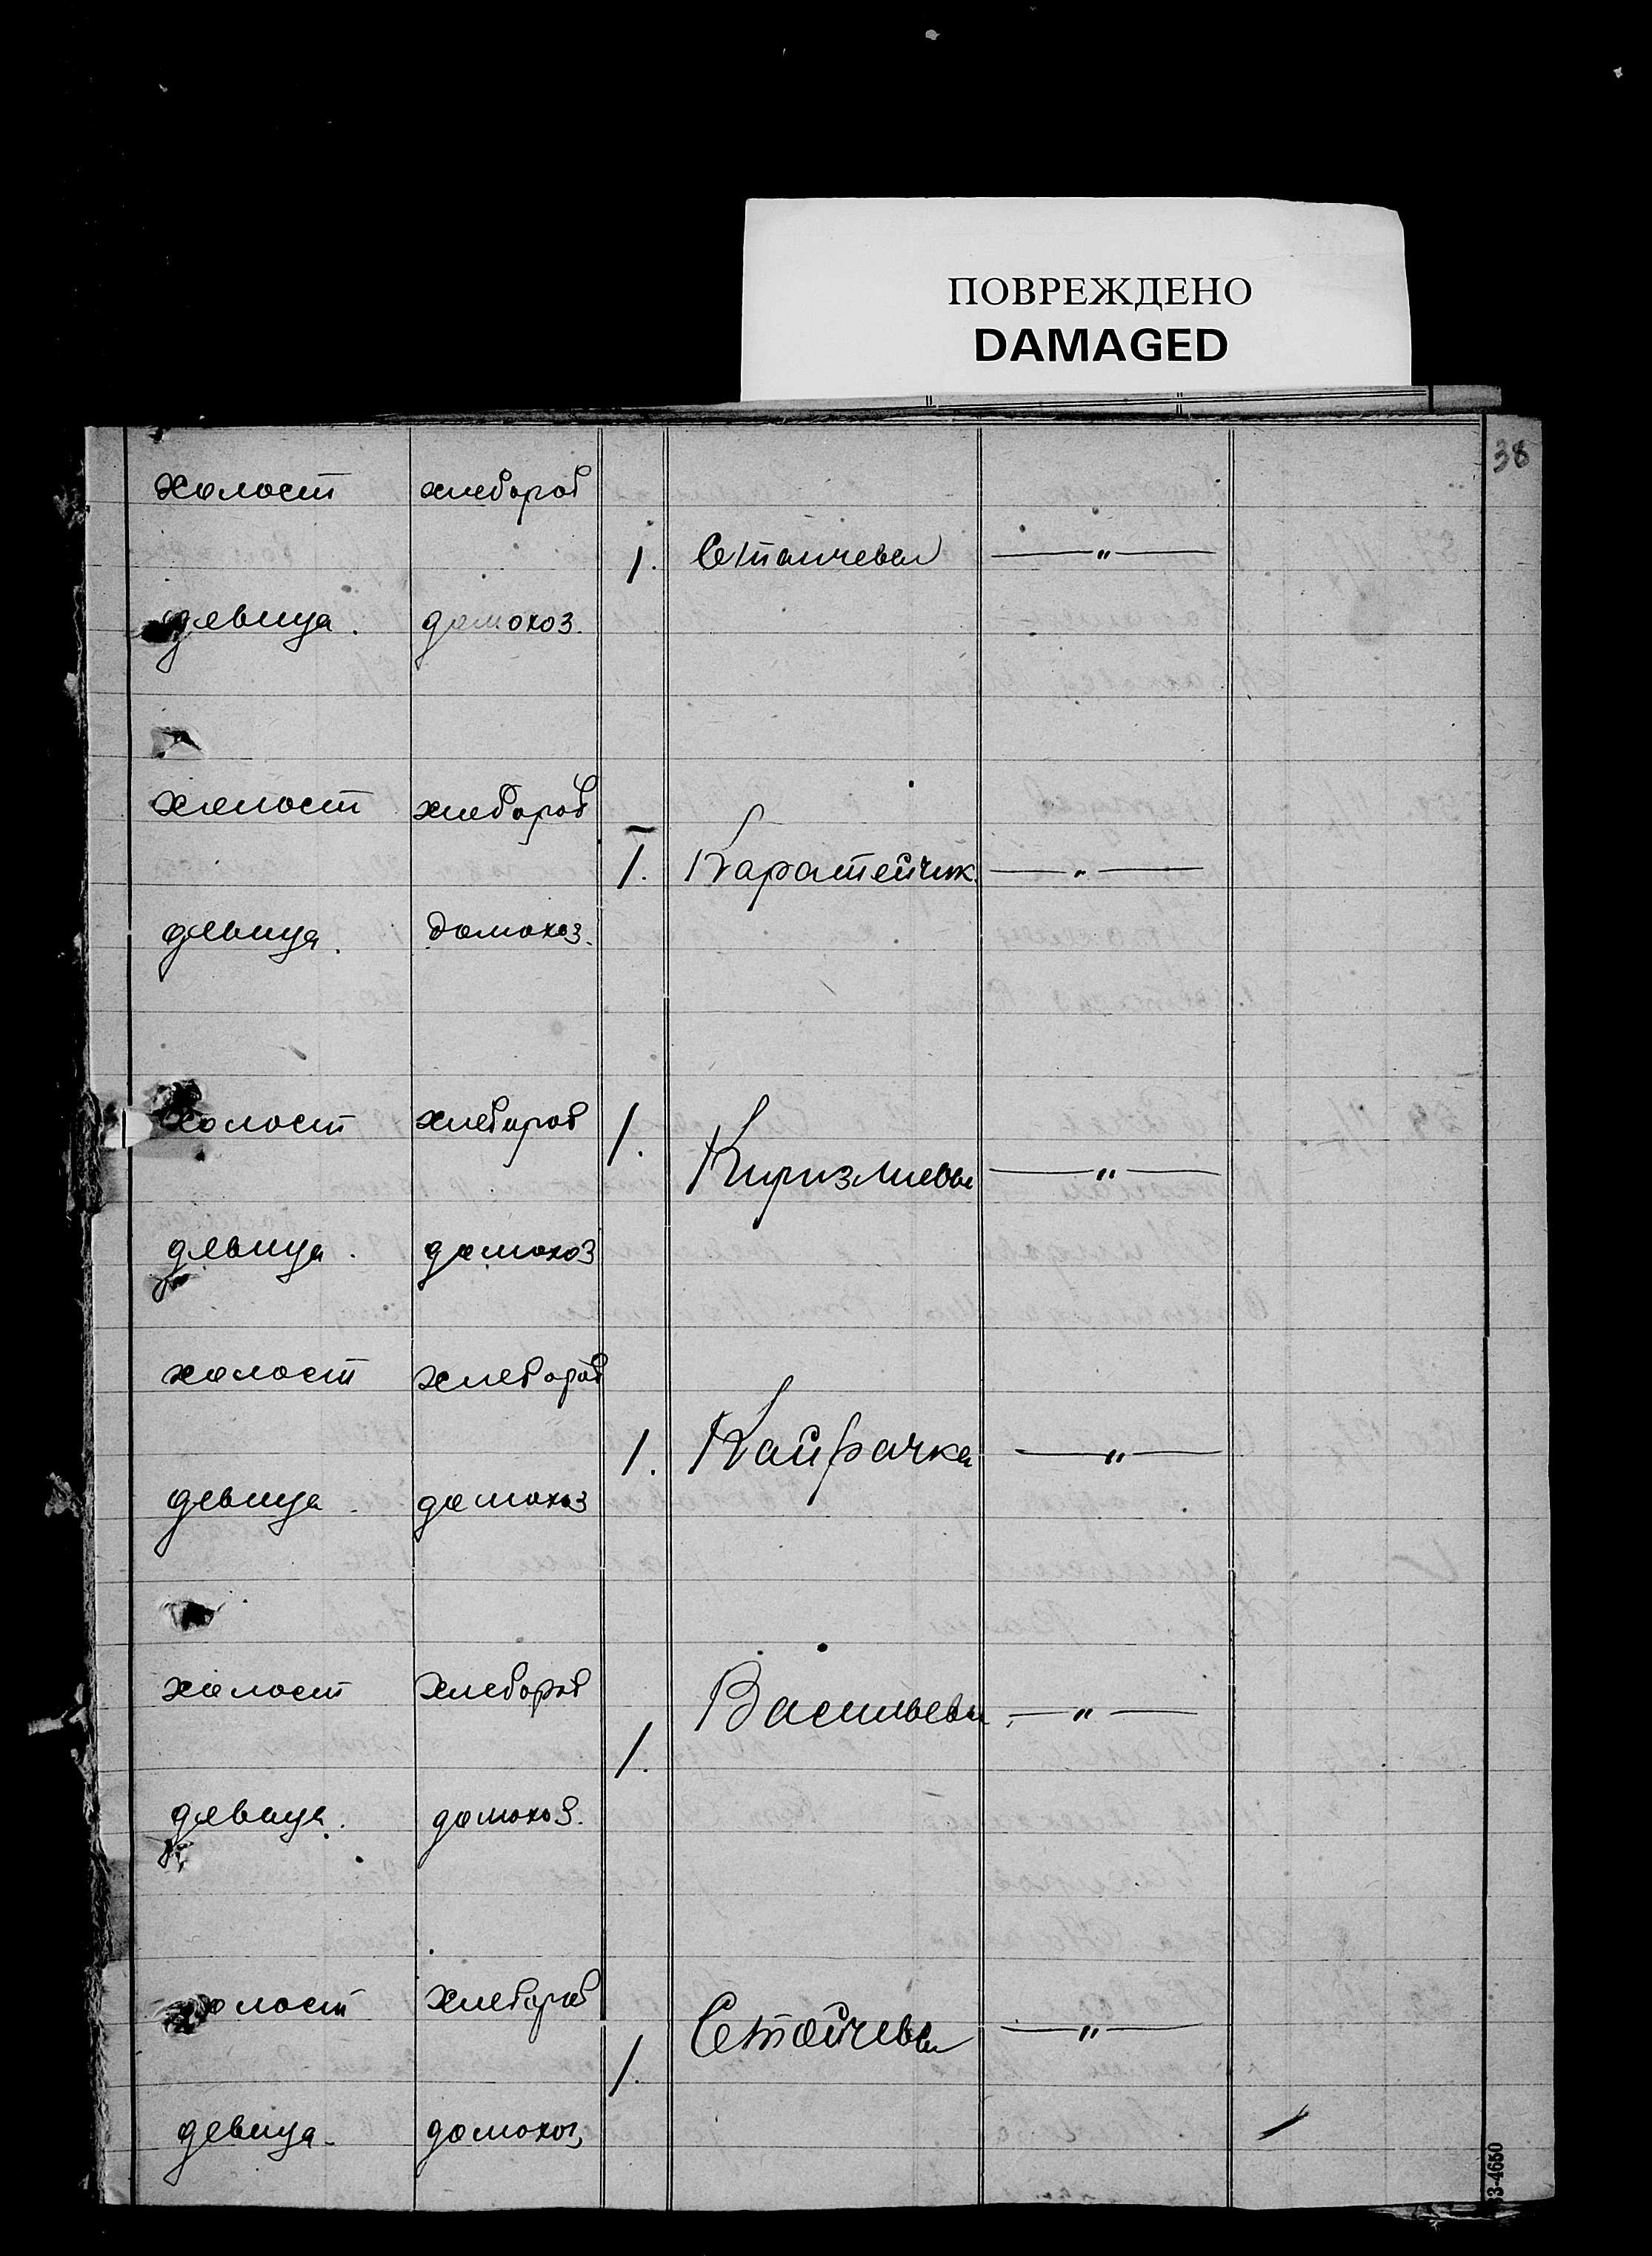 ПОВРЕЖДЕНО
DAMAGED
38
холост хлебороб
1. Станчевы —"—
девица. домохоз.
холост хлебороб
1. Каратейчик. —"—
девица. домохоз.
холост хлебороб 1.
Киризлиевы —"—
девица. домохоз
холост хлебороб
1. Кайрачка —"—
девица домохоз
холост хлебороб Васильевы —"—
1.
девица. домохоз.
холост хлебороб Стойчевы —"—
1.
девица домохоз,
33-4650